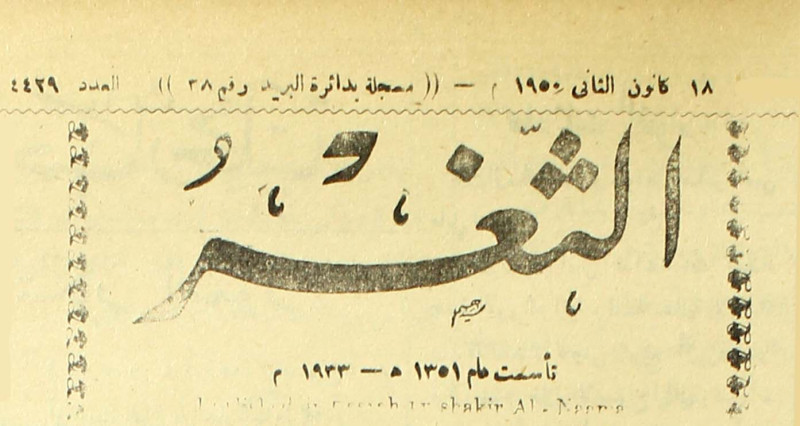 ١٨ كانون الثاني ١٩٥٠ م — ((مسجلة بدائرة البريد رقم ٣٨)) العدد ٤٤٢٩
الثَّغْرُ
رحيم
تأسست عام ١٣٥١ ه — ١٩٣٣ م
Shakir Al-Neama